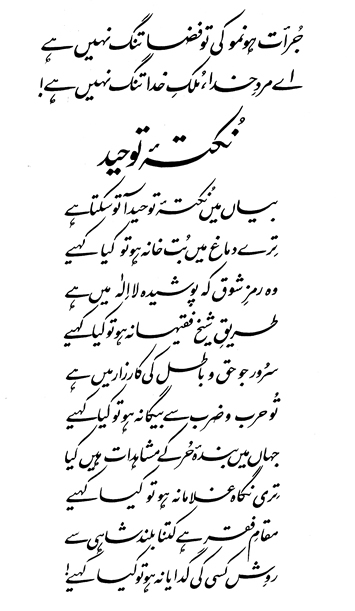 جرأت ہو نمو کی تو فضا تنگ نہیں ہے
اے مردِ خدا، مُلکِ خدا تنگ نہیں ہے!
نُکتۂ توحید
بیاں میں نُکتۂ توحید آ تو سکتا ہے
ترے دماغ میں بُت خانہ ہو تو کیا کہیے
وہ رمزِ شوق کہ پوشیدہ لااِلٰہ میں ہے
طریقِ شیخ فقیہانہ ہو تو کیا کہیے
سُرور جو حق و باطل کی کارزار میں ہے
تُو حرب و ضرب سے بیگانہ ہو تو کیا کہیے
جہاں میں بندۂ حُر کے مشاہدات ہیں کیا
تری نگاہ غلامانہ ہو تو کیا کہیے
مقامِ فقر ہے کتنا بلند شاہی سے
روِش کسی کی گدایانہ ہو تو کیا کہیے!